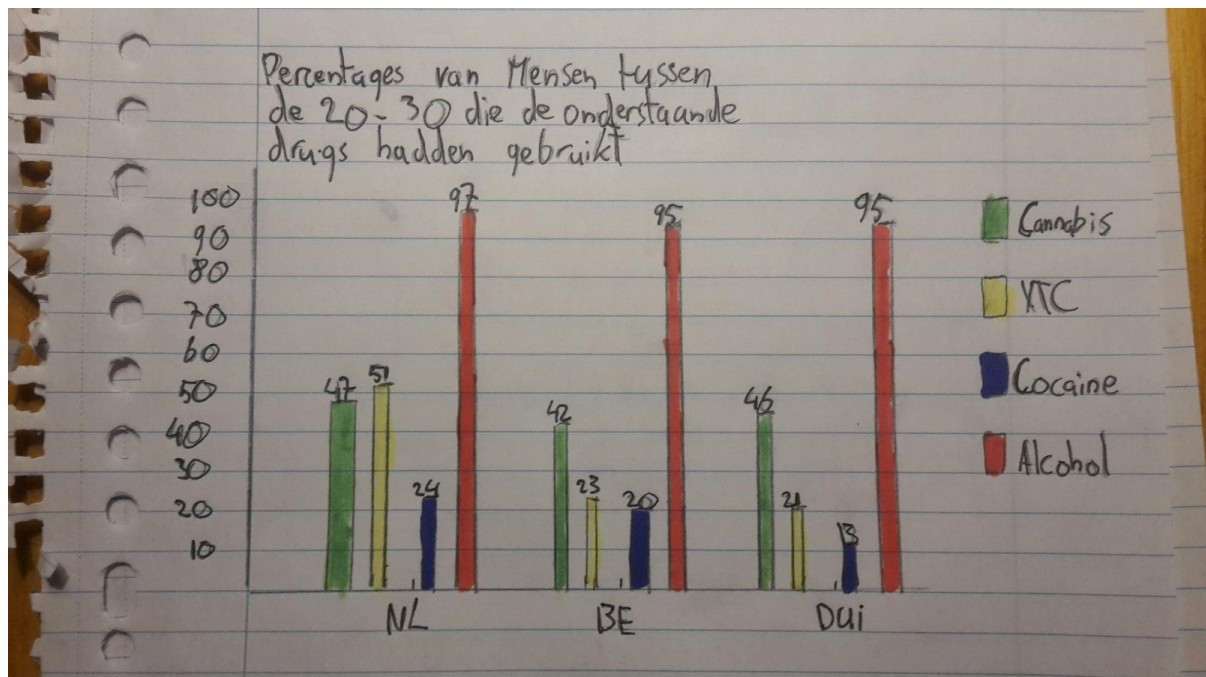 Percentages van Mensen tussen
de 20-30 die de onderstaande
drugs hadden gebruikt
100
90
80
70
60
50
40
30
20
10
47 51 24 97
42 23 20 95
46 21 13 95
NL BE Dui
Cannabis
XTC
Cocaine
Alcohol